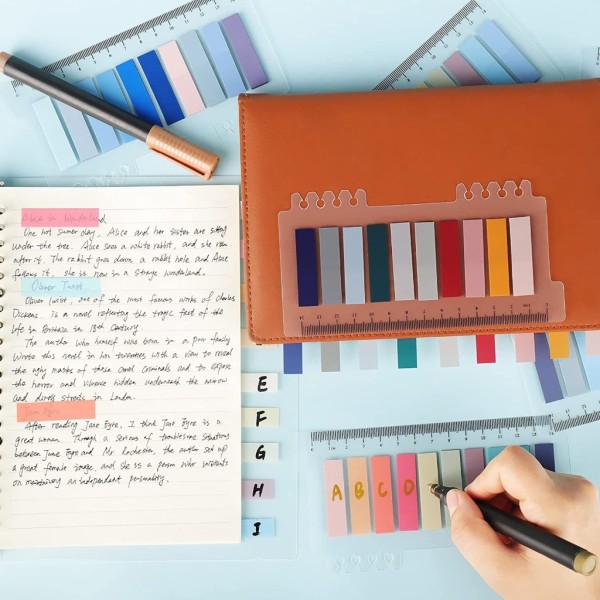 Alice in Wonderland
One hot sumer day, Alice and her sister are sitting
under the tree. Alice sees a white rabbit, and she run
after it. The rabbit goes down a rabbit hole, and Alice
follows it, she is now in a strange wonderland.
Oliver Twist
Oliver Twist, one of the most famous works of Charles
Dickens, is a novel reflecting the tragic fact of the
life in Britain in 18th Century.
The author who himself was born in a poor family
Wrote this novel in his twenties with a view to reveal
the ugly masks of these cruel criminals and to expose
the horror and violence hidden underneath the narrow
and dirty streets in London.
Jane Eyre
After reading Jane Eyre, I think Jane Eyre is a
great woman. Through a series of troublesome situations
between Jane Eyre and Mr Rochester, the author set up
a great female image, and she is a person who insists
on maintaining an independent personality.
E
F
G
H
I
A B C D